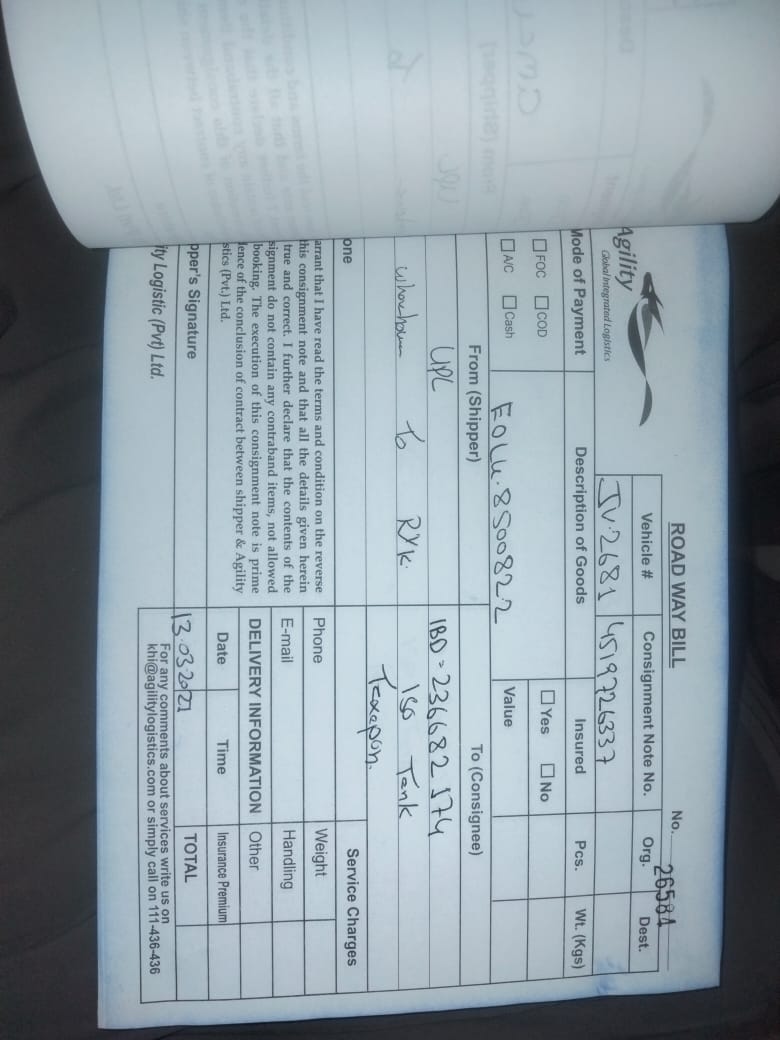 ROAD WAY BILL
No. 26584
Agility
Global Integrated Logistics
Vehicle # Consignment Note No. Org. Dest.
JV-2681 4519726337
Mode of Payment Description of Goods Insured Pcs. Wt. (Kgs)
FOC COD Yes No
A/C Cash Value
EOLU-8500822
From (Shipper) To (Consignee)
UPL IBD-236682574
To RYK ISO Tank
Texapon.
one Service Charges
arrant that I have read the terms and condition on the reverse
this consignment note and that all the details given herein
true and correct. I further declare that the contents of the
signment do not contain any contraband items, not allowed
booking. The execution of this consignment note is prime
lence of the conclusion of contract between shipper & Agility
stics (Pvt.) Ltd.
Phone Weight
E-mail Handling
DELIVERY INFORMATION Other
Date Time Insurance Premium
pper's Signature 13.03.2021 TOTAL
ity Logistic (Pvt) Ltd.
For any comments about services write us on
khi@agilitylogistics.com or simply call on 111-436-436